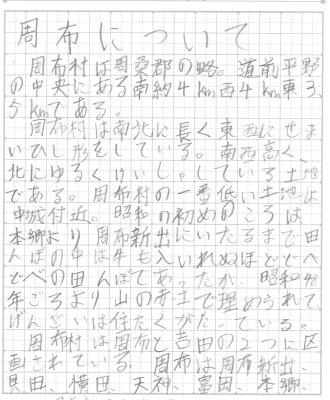 周布について
周布村は周桑郡の略。道前平野
の中央にある南約4km西4km東3、
5kmである。
周布村は南北に長く東西にせま
いひし形をしている。南西高く、
北にゆるくけいしゃしている土地
である。周布村の一番低い土地は
中城付近。昭和の初めのころは
本郷より周布新出にいたるまで田
んぼの中は牛も入いれぬほどどべ
どべの田んぼであったが、昭和48
年ごろより山の赤土で埋められて、
げんざいは住たくがたっている。
周布村は周布と吉田の2つに区
画されている。周布は周布新出、
貝田、横田、天神、冨田、本郷、